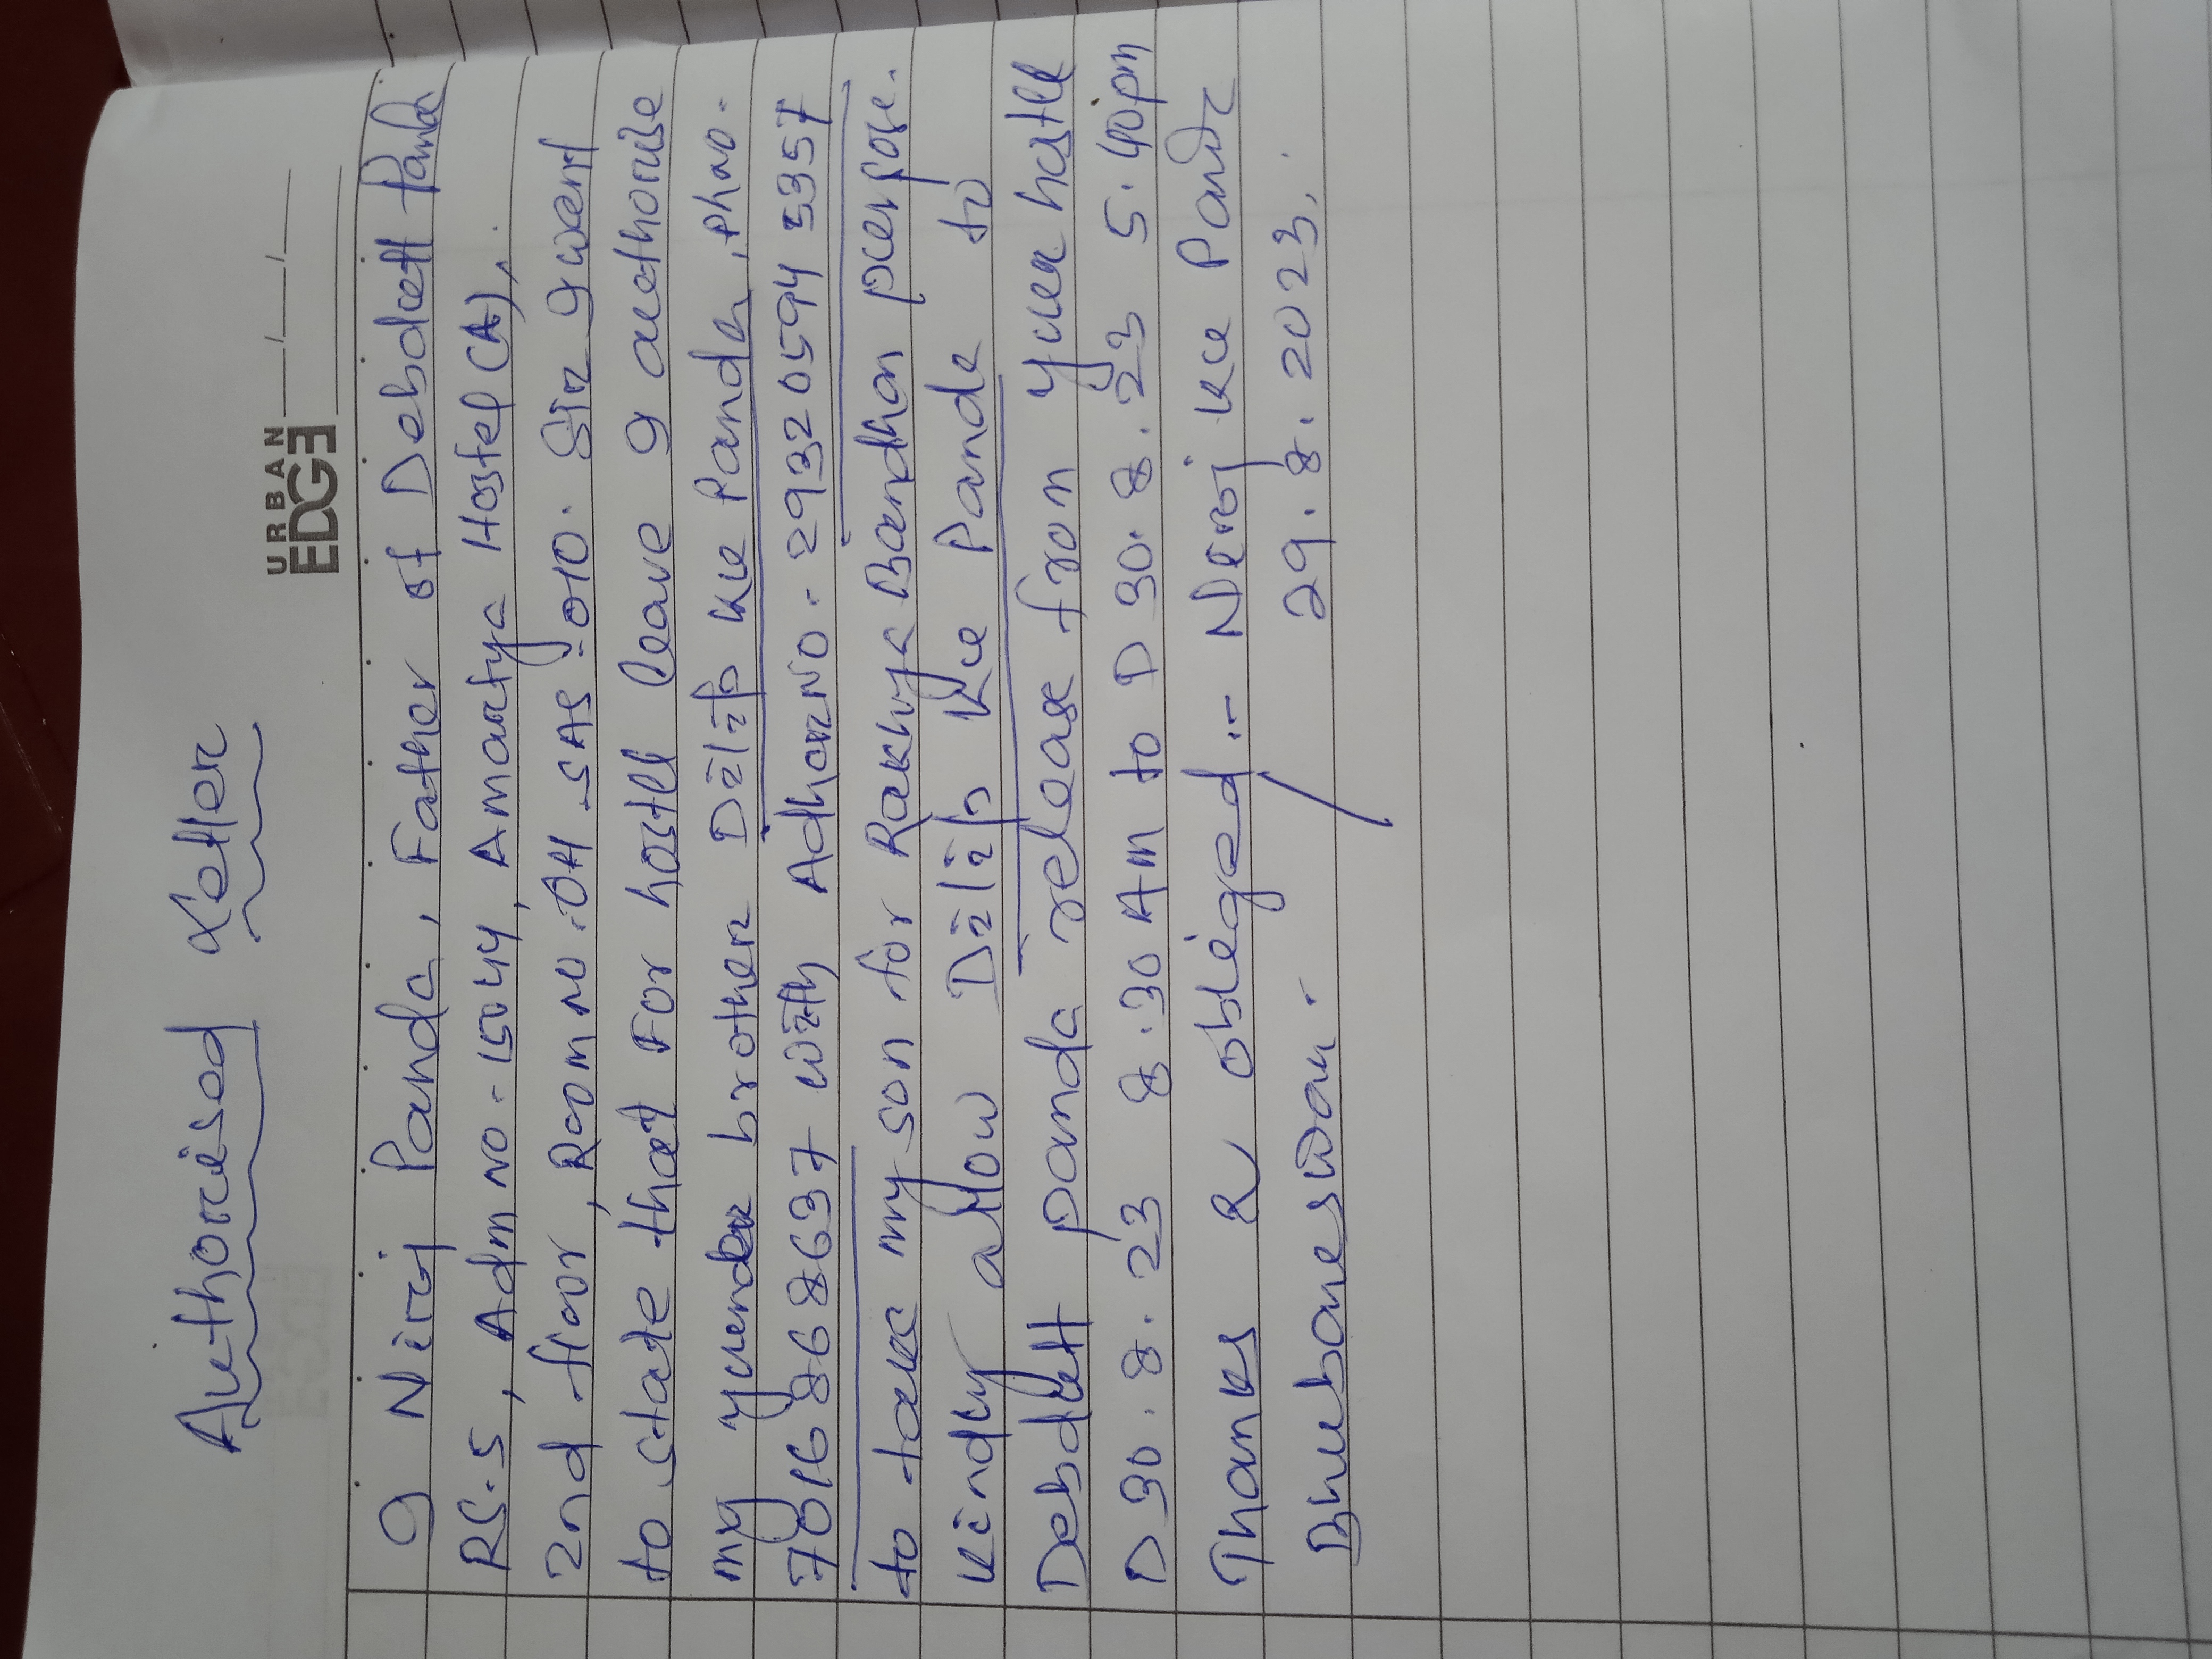 Authorised Letter
URBAN
EDGE
I Niroj Panda, Father of Debdutt Panda
RS.5, Adm NO-15044, Amartya Hostel (A),
2nd floor, Room NO.OH SAS-010. Sir I want
to state that For hostll leave I authorise
my younder brother Dilip Ku Panda, phno.
7016868637 with AdharNO. 293205945357
to take my son for Rakhya Bandhan purpose.
Kindly allow Dilip Ku Panda to
Debdutt panda release from your hostll
D 30.8.23 8.30 Am to D 30.8.23 5.40pm
Thanks & obliged :- Niroj Ku Panda
Bhubaneswar. 29.8.2023.